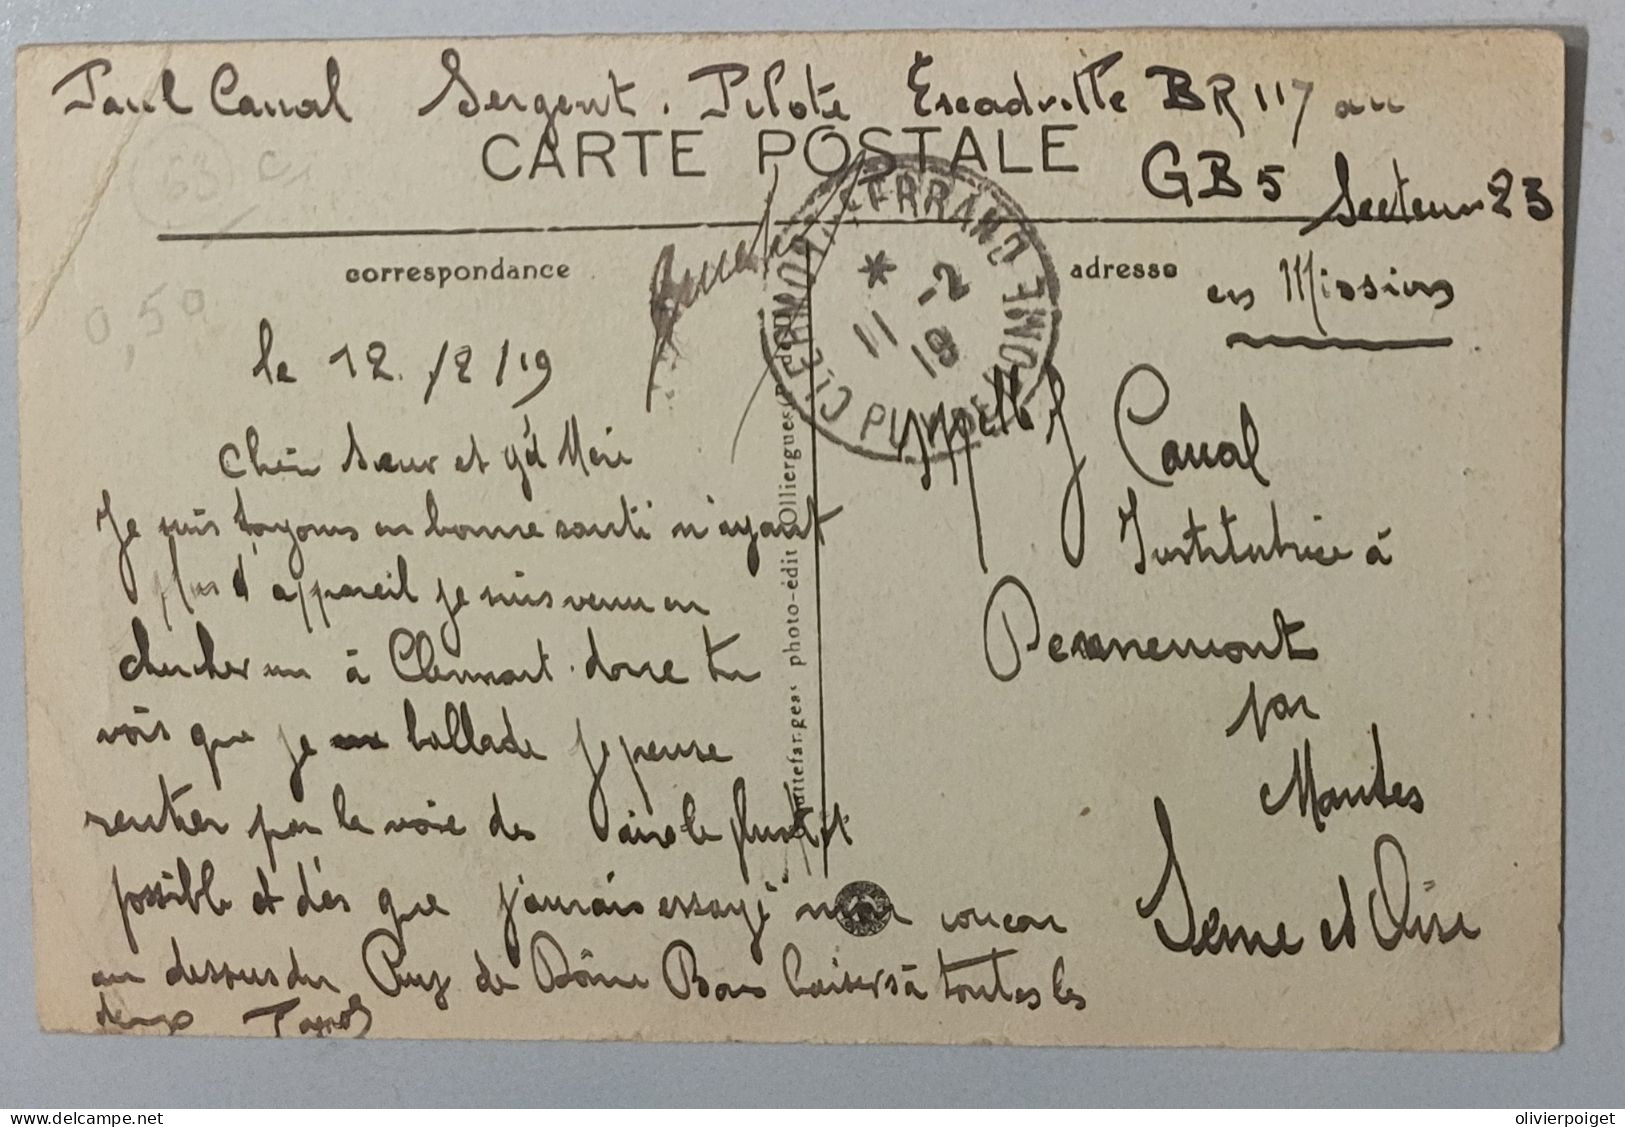 Paul Canal Sergent. Pilote Escadrille BR 117 au
CARTE POSTALE
GB5 Secteur 23
en Missions
correspondance
adresse
CLERMONT-FERRAND
PUY-DE-DOME
* 11 -2 19
0,50
le 12./2/19
Chère Sœur et gd Mère
Je suis toujours en bonne santé n'ayant
plus d'appareil je suis venu en
chercher un à Clermont. donc tu
vois que je ballade je pense
rentrer par la voie des airs le plus tôt
possible et dès que j'aurais essayé mon coucou
au dessus du Puy de Dôme Bons baisers à toutes les
deux
Melle J Canal
Institutrice à
Perdreauville
par
Mantes
Seine et Oise
photo-édit Olliergues